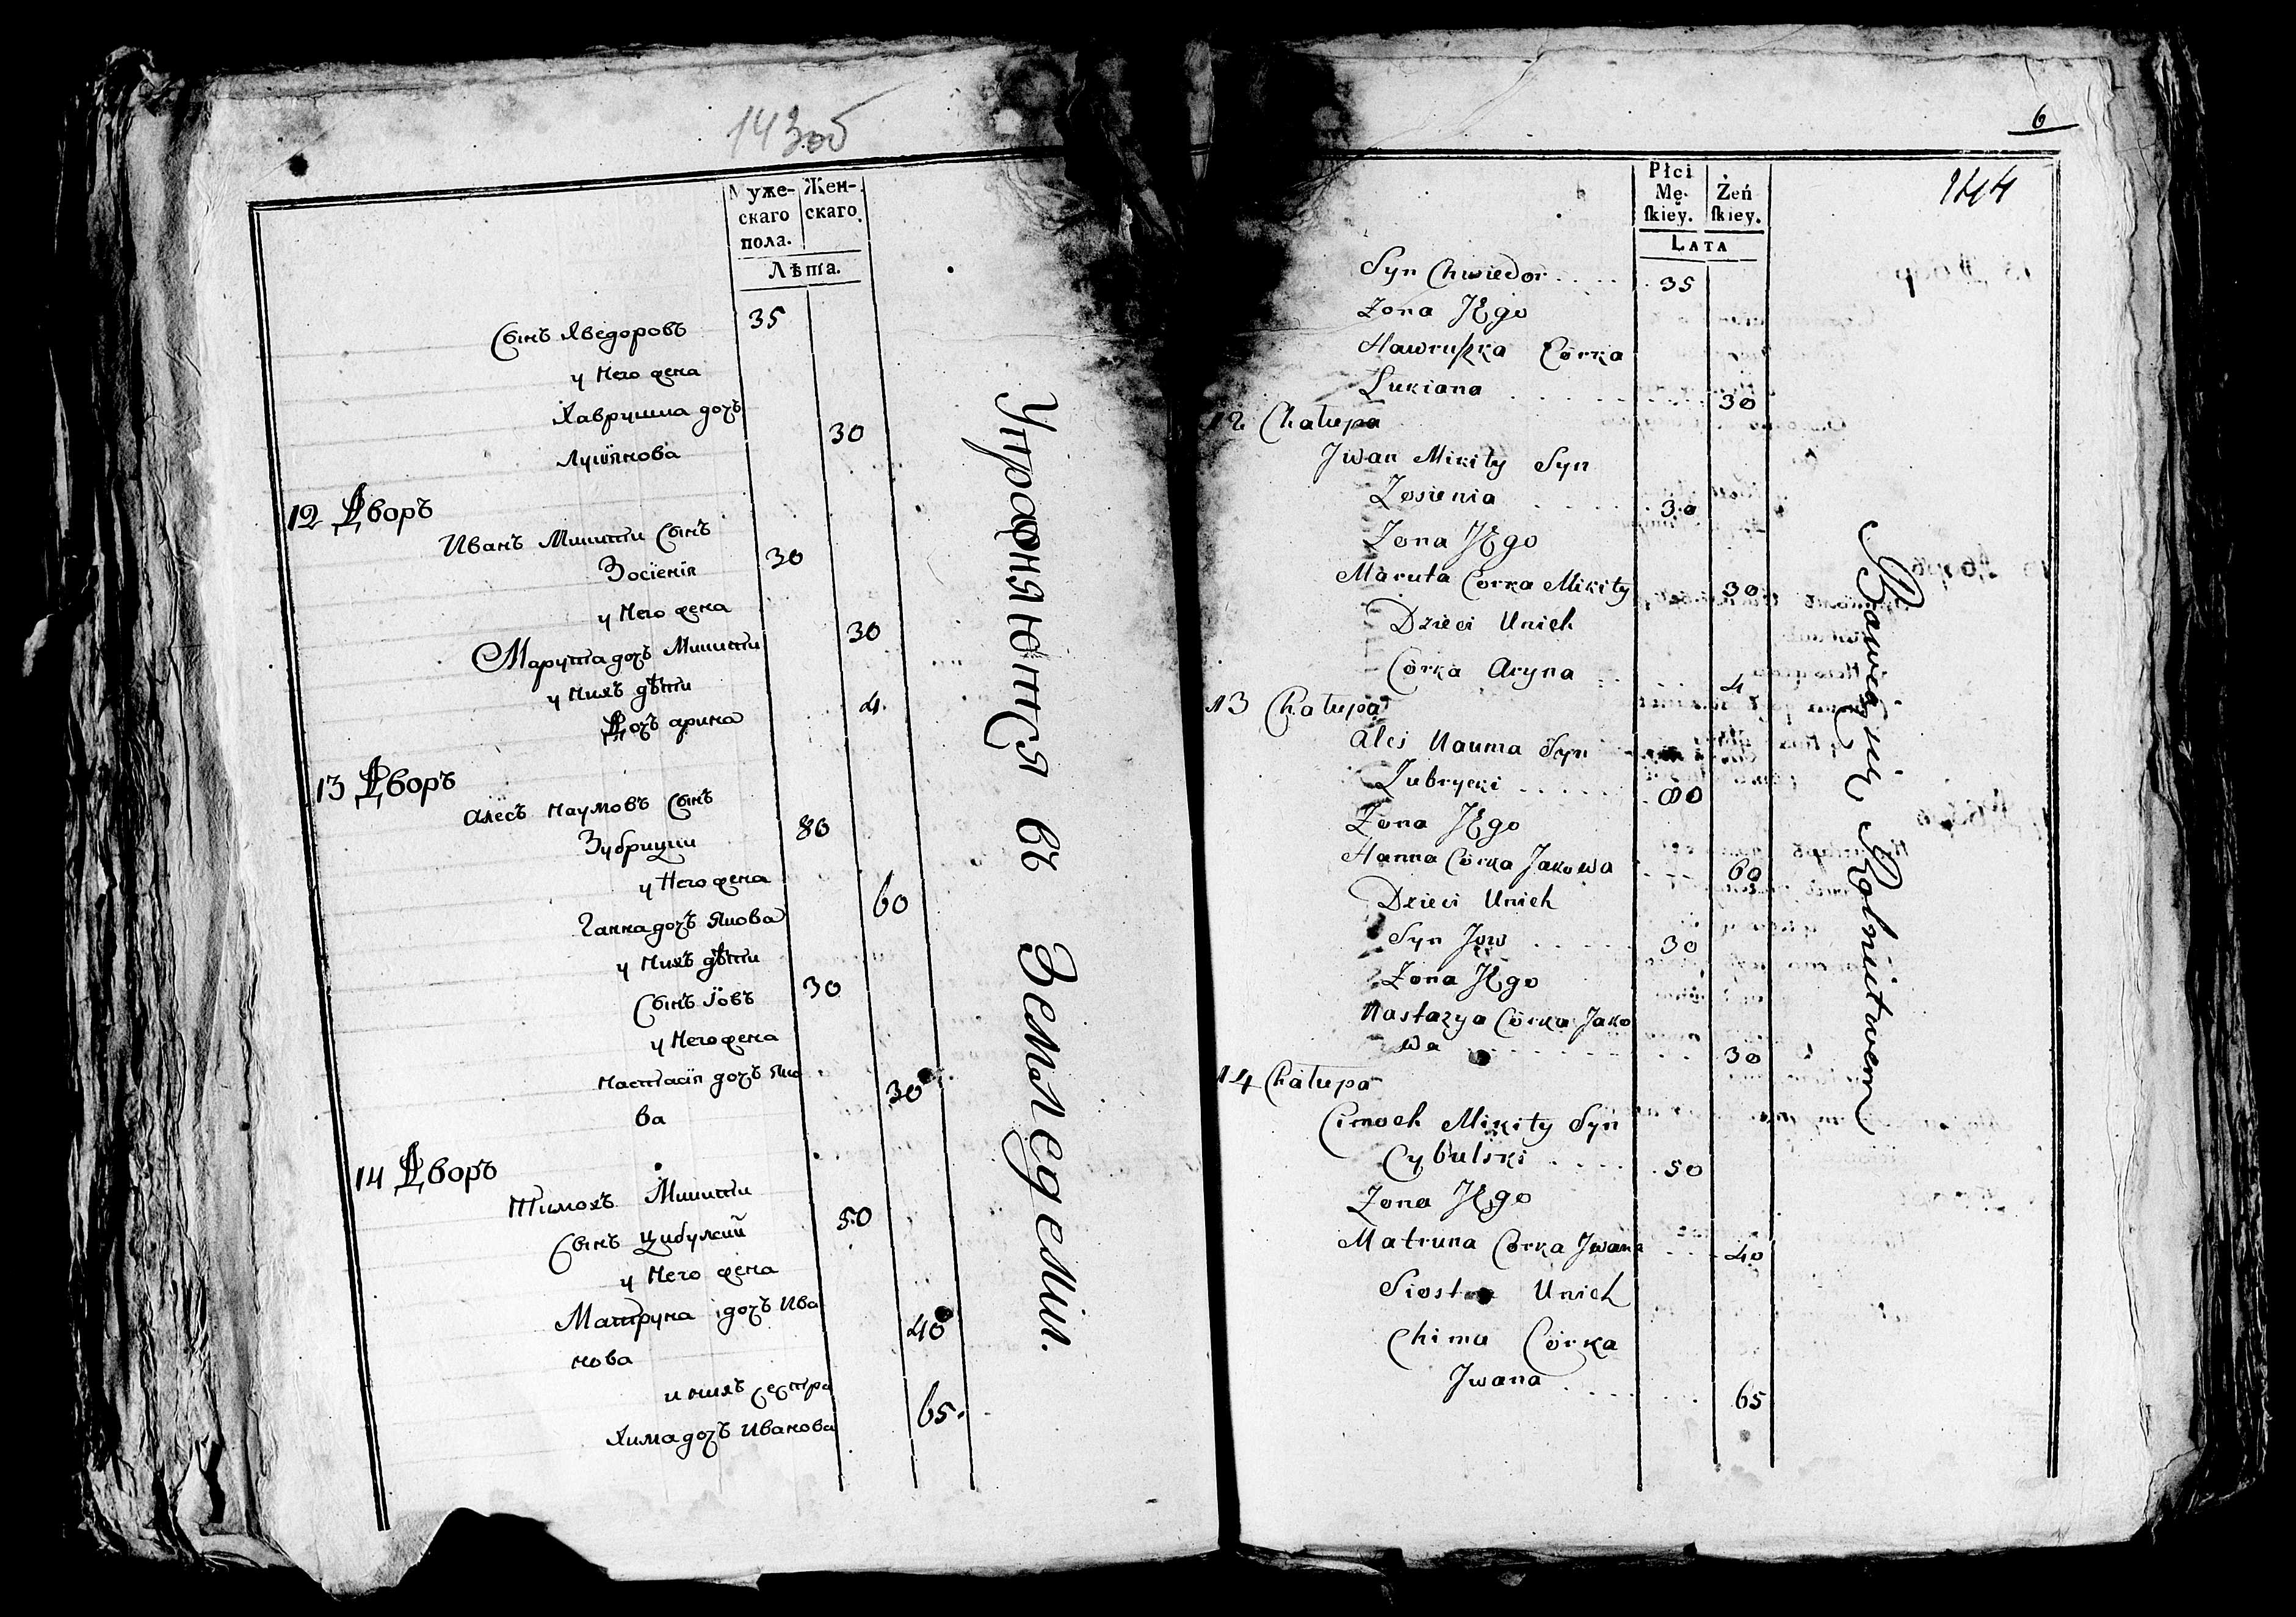 143об
Муже- Жен-
скаго скаго.
пола.
Лѣта.
Сынъ Хведоровъ 35
у него жена
Хаврушка дочь
Лукіянова 30
12 Дворъ
Иванъ Микити Сынъ
Зосіенія 30
у него жена
Марута дочь Микити 30
у нихъ дѣти
Дочь арина 4.
13 Дворъ
алесь наумовъ Сынъ
Зубрицки 80
у него жена
Ганна дочь Якова 60
у нихъ дѣти
Сынъ Іовъ 30
у него жена
настасія дочь Яко
ва 30
14 Дворъ
Тимохъ Микити
Сынъ цибулский 50
у него жена
Матруна дочь Ива
нова 40
и нихъ сестра
Хима дочь Иванова 65.
Упражняются въ Земледеліи.
6
144
Płci
Mę- Żeń
skiey. skiey.
LATA
Syn Chwiedor . . . . 35
Żona JEgo
Hawruszka Córka
Lukiana . . . . 30
12 Chałupa
Jwan Mikity Syn
Zosienia . . . . 30
Żona JEgo
Maruta Corka Mikity 30
Dzieci Unich
Córka Aryna . . . . 4
13 Chałupa
Aleś Nauma Syn
Zubrycki . . . . 80
Żona JEgo
Hanna Córka Jakowa . . 60
Dzieci Unich
Syn Jow . . . . 30
Żona JEgo
Nastazya Córka Jako
wa . . . . 30
14 Chałupa
Cimoch Mikity Syn
Cybulski . . . . 50
Żona JEgo
Matruna Córka Jwana . . 40
Siostra Unich
Chima Córka
Jwana . . . . 65
Bawią się Rolnictwem